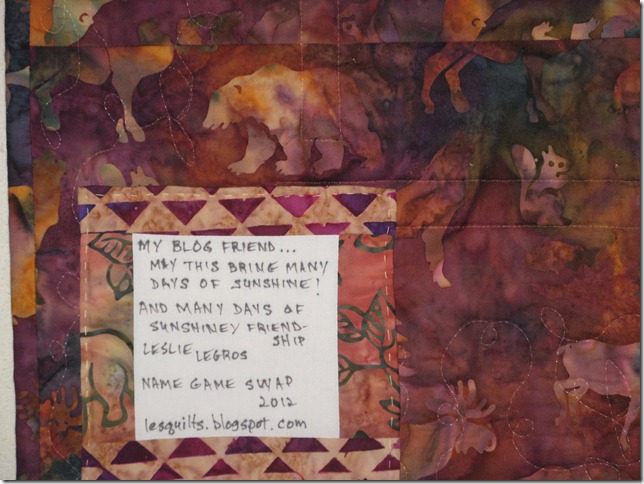 MY BLOG FRIEND...
MAY THIS BRING MANY
DAYS OF SUNSHINE!
AND MANY DAYS OF
SUNSHINEY FRIEND-
SHIP
LESLIE LEGROS
NAME GAME SWAP
2012
lesquilts.blogspot.com